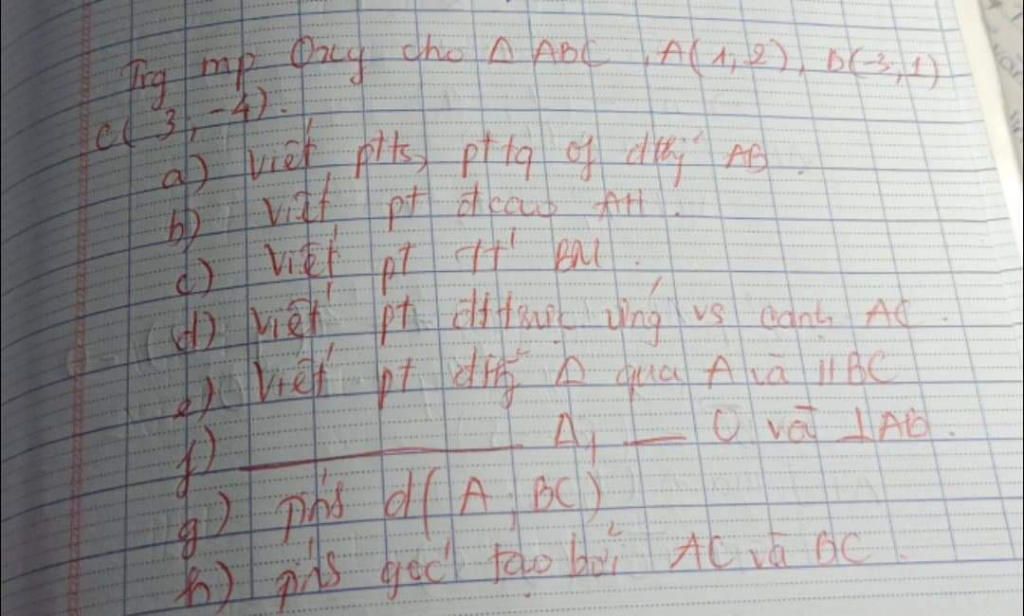 Trg mp Oxy cho Δ ABC, A(1,2), B(-3,1)
C(3,-4).
a) viết ptts, pttq of đthg AB.
b) viết pt đcao AH.
c) viết pt tt BM.
d) viết pt đttrực ứng vs cạnh AC.
e) viết pt đthg Δ qua A và // BC
f) ____ Δ₁ __ O và ⊥AB.
g) d(A, BC)
h) góc tạo bởi AC và BC.